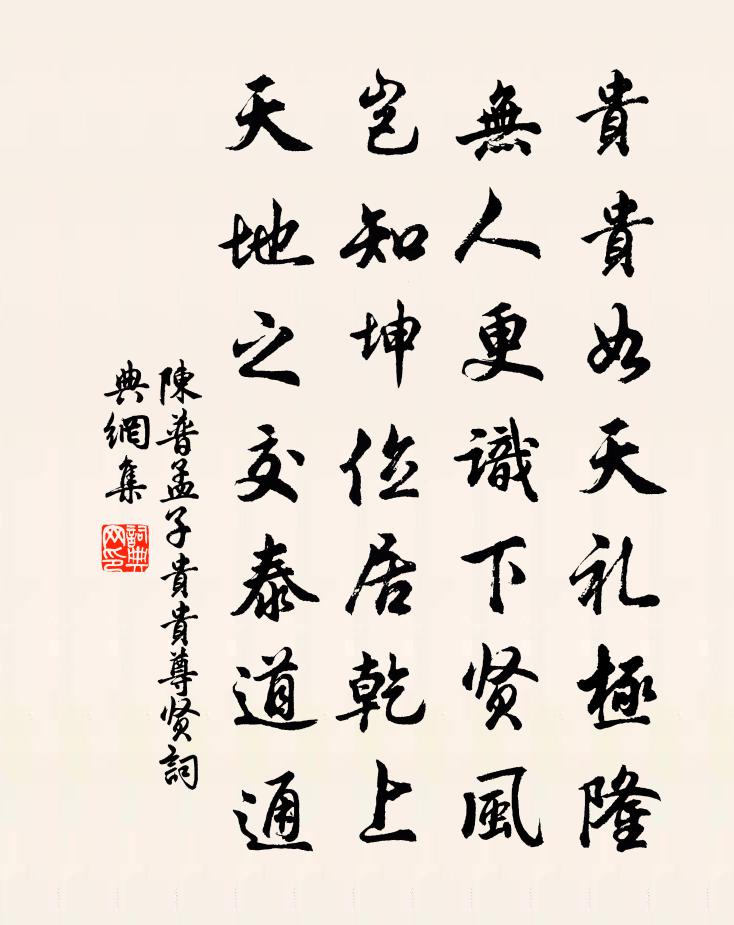 貴貴如天礼極隆
無人更識下贤風
豈知坤位居乾上
天地之交泰道通
陳普孟子貴貴尊贤詞
典網集
詞典網印